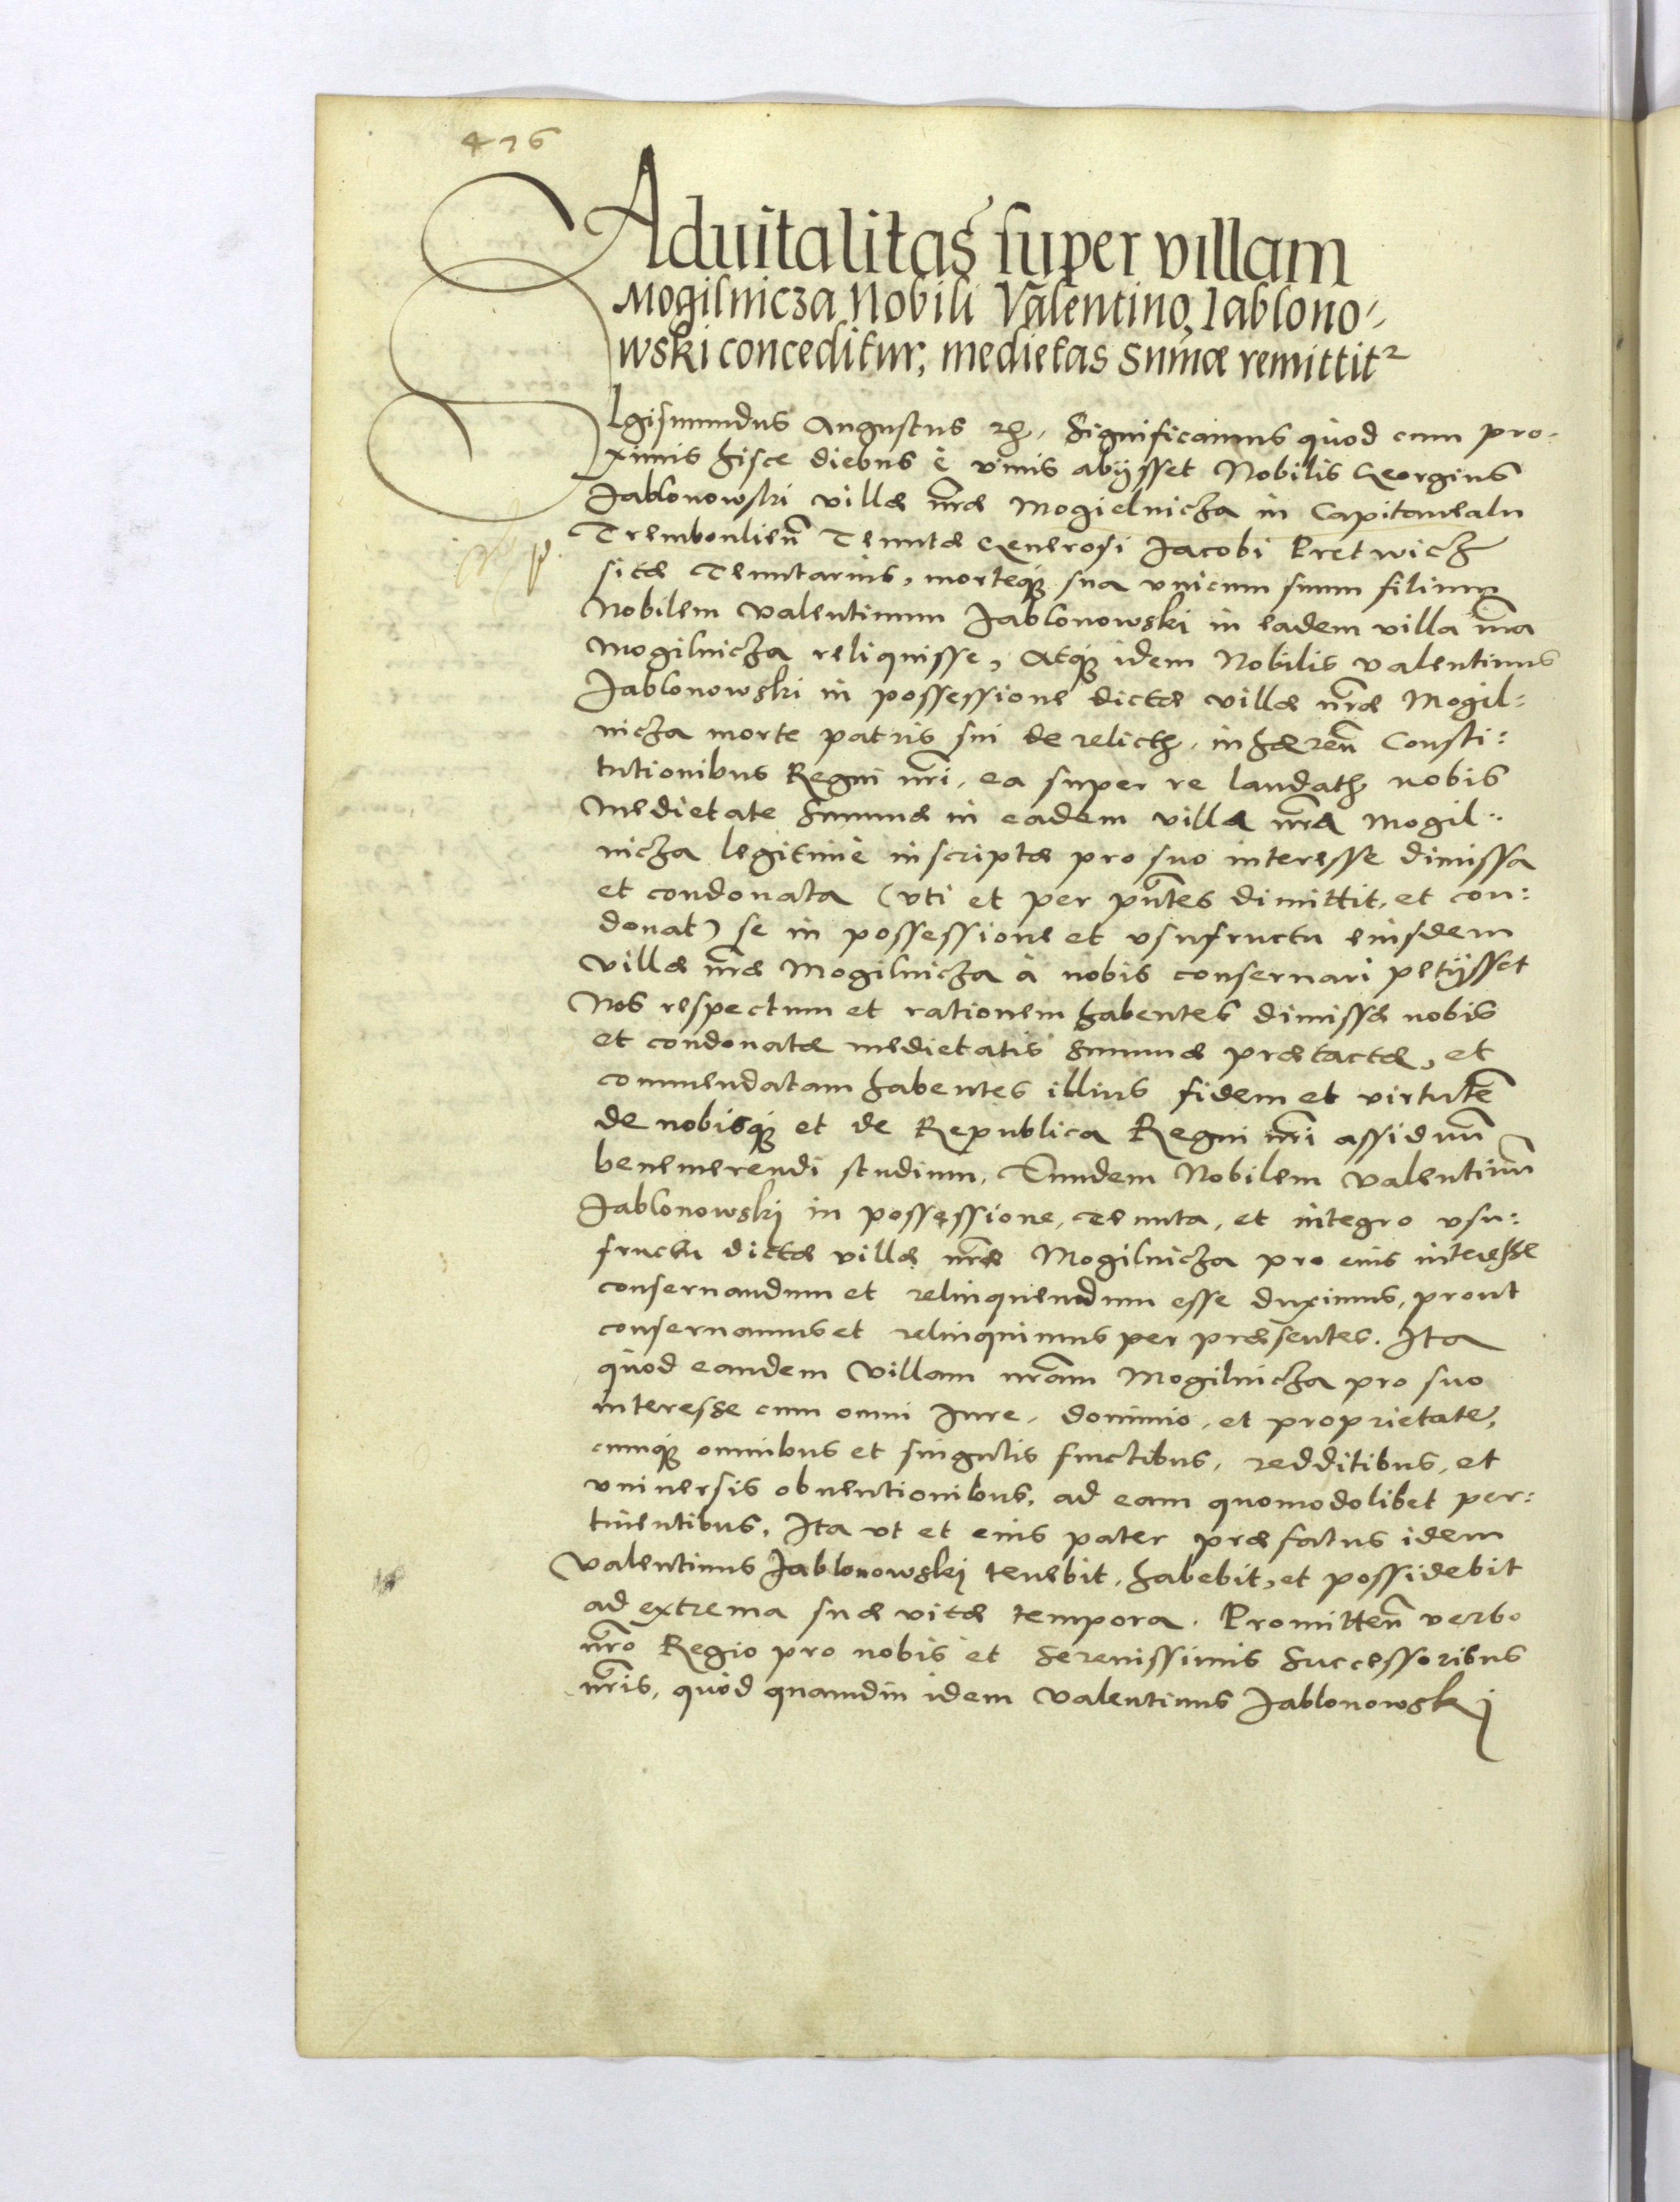 476
Aduitalitas super villam
Mogilnicza Nobili Valentino Iablono-
wski conceditur, medietas Summæ remittitr
Sigismundus Augustus Significamus quòd cum pro-
ximis hisce diebus è viuis abijsset Nobilis Georgius
Jablonowski villæ nr̃æ Mogielnicza in Capitaneatu
Tremboulien̄ Tenutæ Generosi Jacobi Pretwicz
sitæ Tenutarius, morteq; sua vnicum suum filium
Nobilem Valentinum Jablonowski in eadem villa nr̃a
Mogilnicza reliquisse, Atq; idem Nobilis Valentinus
Jablonowski in possessione dictæ villæ nr̃æ Mogil-
nicza morte patris sui de relicta, inhæren̄ Consti:
tutionibus Regni nr̃i, ea super re laudatis nobis
medietate Summæ in eadem villa nr̃a Mogil-
nicza legitimè inscriptæ pro suo interesse dimissa
et condonata (vti et per pn̄tes dimittit, et con:
donat) se in possessione et vsufructu eiusdem
villæ nr̃æ Mogilnicza à nobis conseruari petijsset
Nos respectum et rationem habentes dimissæ nobis
et condonatæ medietatis Summæ prætactæ, et
commendatam habentes illius fidem et virtutē
de nobisq; et de Republica Regni nr̃i assiduū
benemerendi studium, Eundem Nobilem Valentinū
Jablonowskj in possessione, tenuta, et integro vsu:
fructu dictæ villæ nr̃æ Mogilnicza pro eius interesse
conseruandum et relinquendum esse duximus, prout
conseruamus et relinquimus per præsentes. Ita
quòd eandem Villam nr̃am Mogilnicza pro suo
interesse cum omni Iure, dominio, et proprietate,
cumq; omnibus et singulis fructibus, redditibus, et
vniuersis obuentionibus, ad eam quomodolibet per:
tinentibus, Ita vt et eius pater præfatus idem
Valentinus Jablonowskj tenebit, habebit, et possidebit
ad extrema suæ vitæ tempora. Promitten̄ verbo
nr̃o Regio pro nobis et Serenissimis Successoribus
nr̃is, quòd quamdiu idem Valentinus Jablonowskj